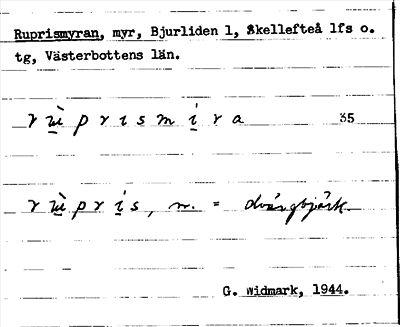 Ruprismyran, myr, Bjurliden 1, Skellefteå lfs o.
tg, Västerbottens län.
r ù̠ p r ɩ s m í̠ r a 35
r ù̠ p r í̠ s, n. = dvärgbjörk.
G. Widmark, 1944.